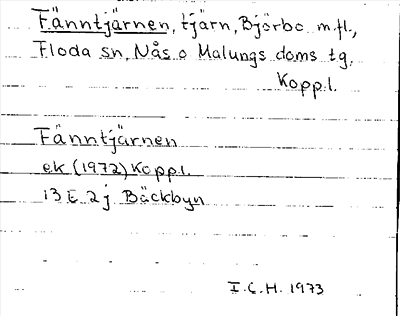 Fänntjärnen, tjärn, Björbo m.fl.,
Floda sn, Nås o Malungs doms tg.
Koppl.
Fänntjärnen
ek (1972) Koppl.
13 E 2j Bäckbyn
I.C.H. 1973